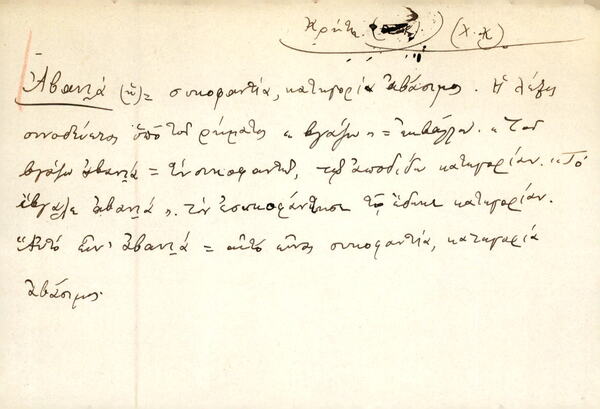 Κρήτη (Χ.Κ)
Ἀβανιά̤ (ἡ) = συκοφαντία, κατηγορία ἀβάσιμος. Ἡ λέξις
συνοδεύεται ὑπὸ τοῦ ῥήματος « βγάζω » = ἐκβάλλω. « Τοῦ
βγάζω ἀβανιά̤ = τὸν συκοφαντῶ, τοῦ ἀποδίδω κατηγορίαν. « Τὸ
ἔβγαλε ἀβανιά̤ ». τὸν ἐσυκοφάντησε τοῦ ἔδωκε κατηγορίαν.
"Αὐτὸ εἶν' ἀβανιά̤ = αὐτὸ εἶναι συκοφαντία, κατηγορία
ἀβάσιμος.